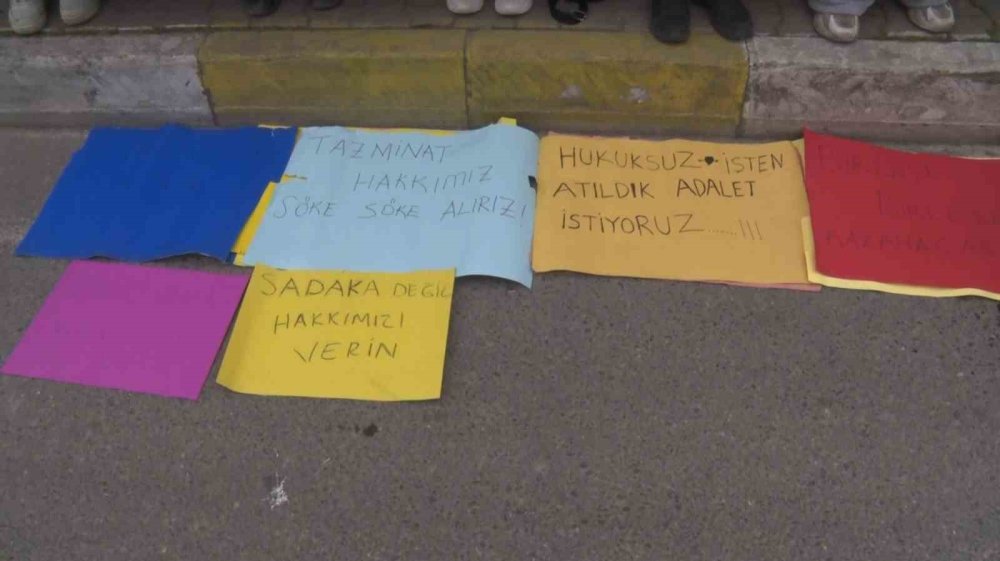 TAZMINAT
HAKKIMIZ
SÖKE SÖKE ALIRIZ!
HUKUKSUZ İŞTEN
ATILDIK ADALET
İSTİYORUZ......!!!
SADAKA DEĞİL
HAKKIMIZI
VERİN